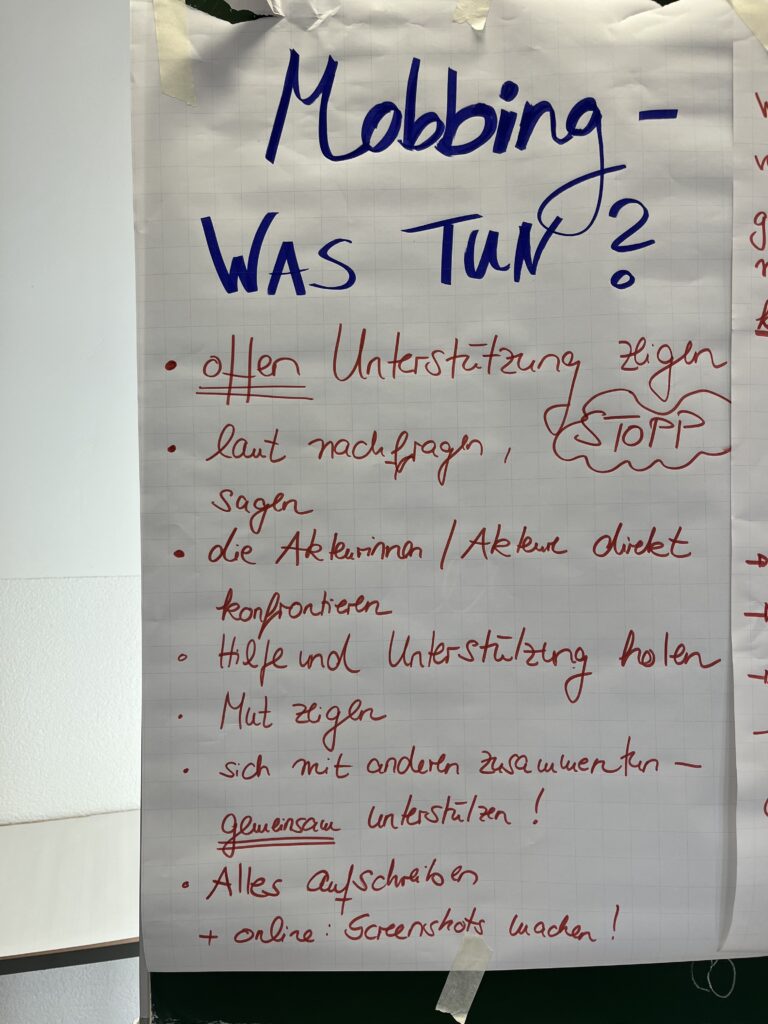 Mobbing -
WAS TUN?
• offen Unterstützung zeigen
• laut nachfragen, STOPP
sagen
• die Akteurinnen / Akteure direkt
konfrontieren
• Hilfe und Unterstützung holen
• Mut zeigen
• sich mit anderen zusammentun –
gemeinsam unterstützen!
• Alles aufschreiben
+ online: Screenshots machen!